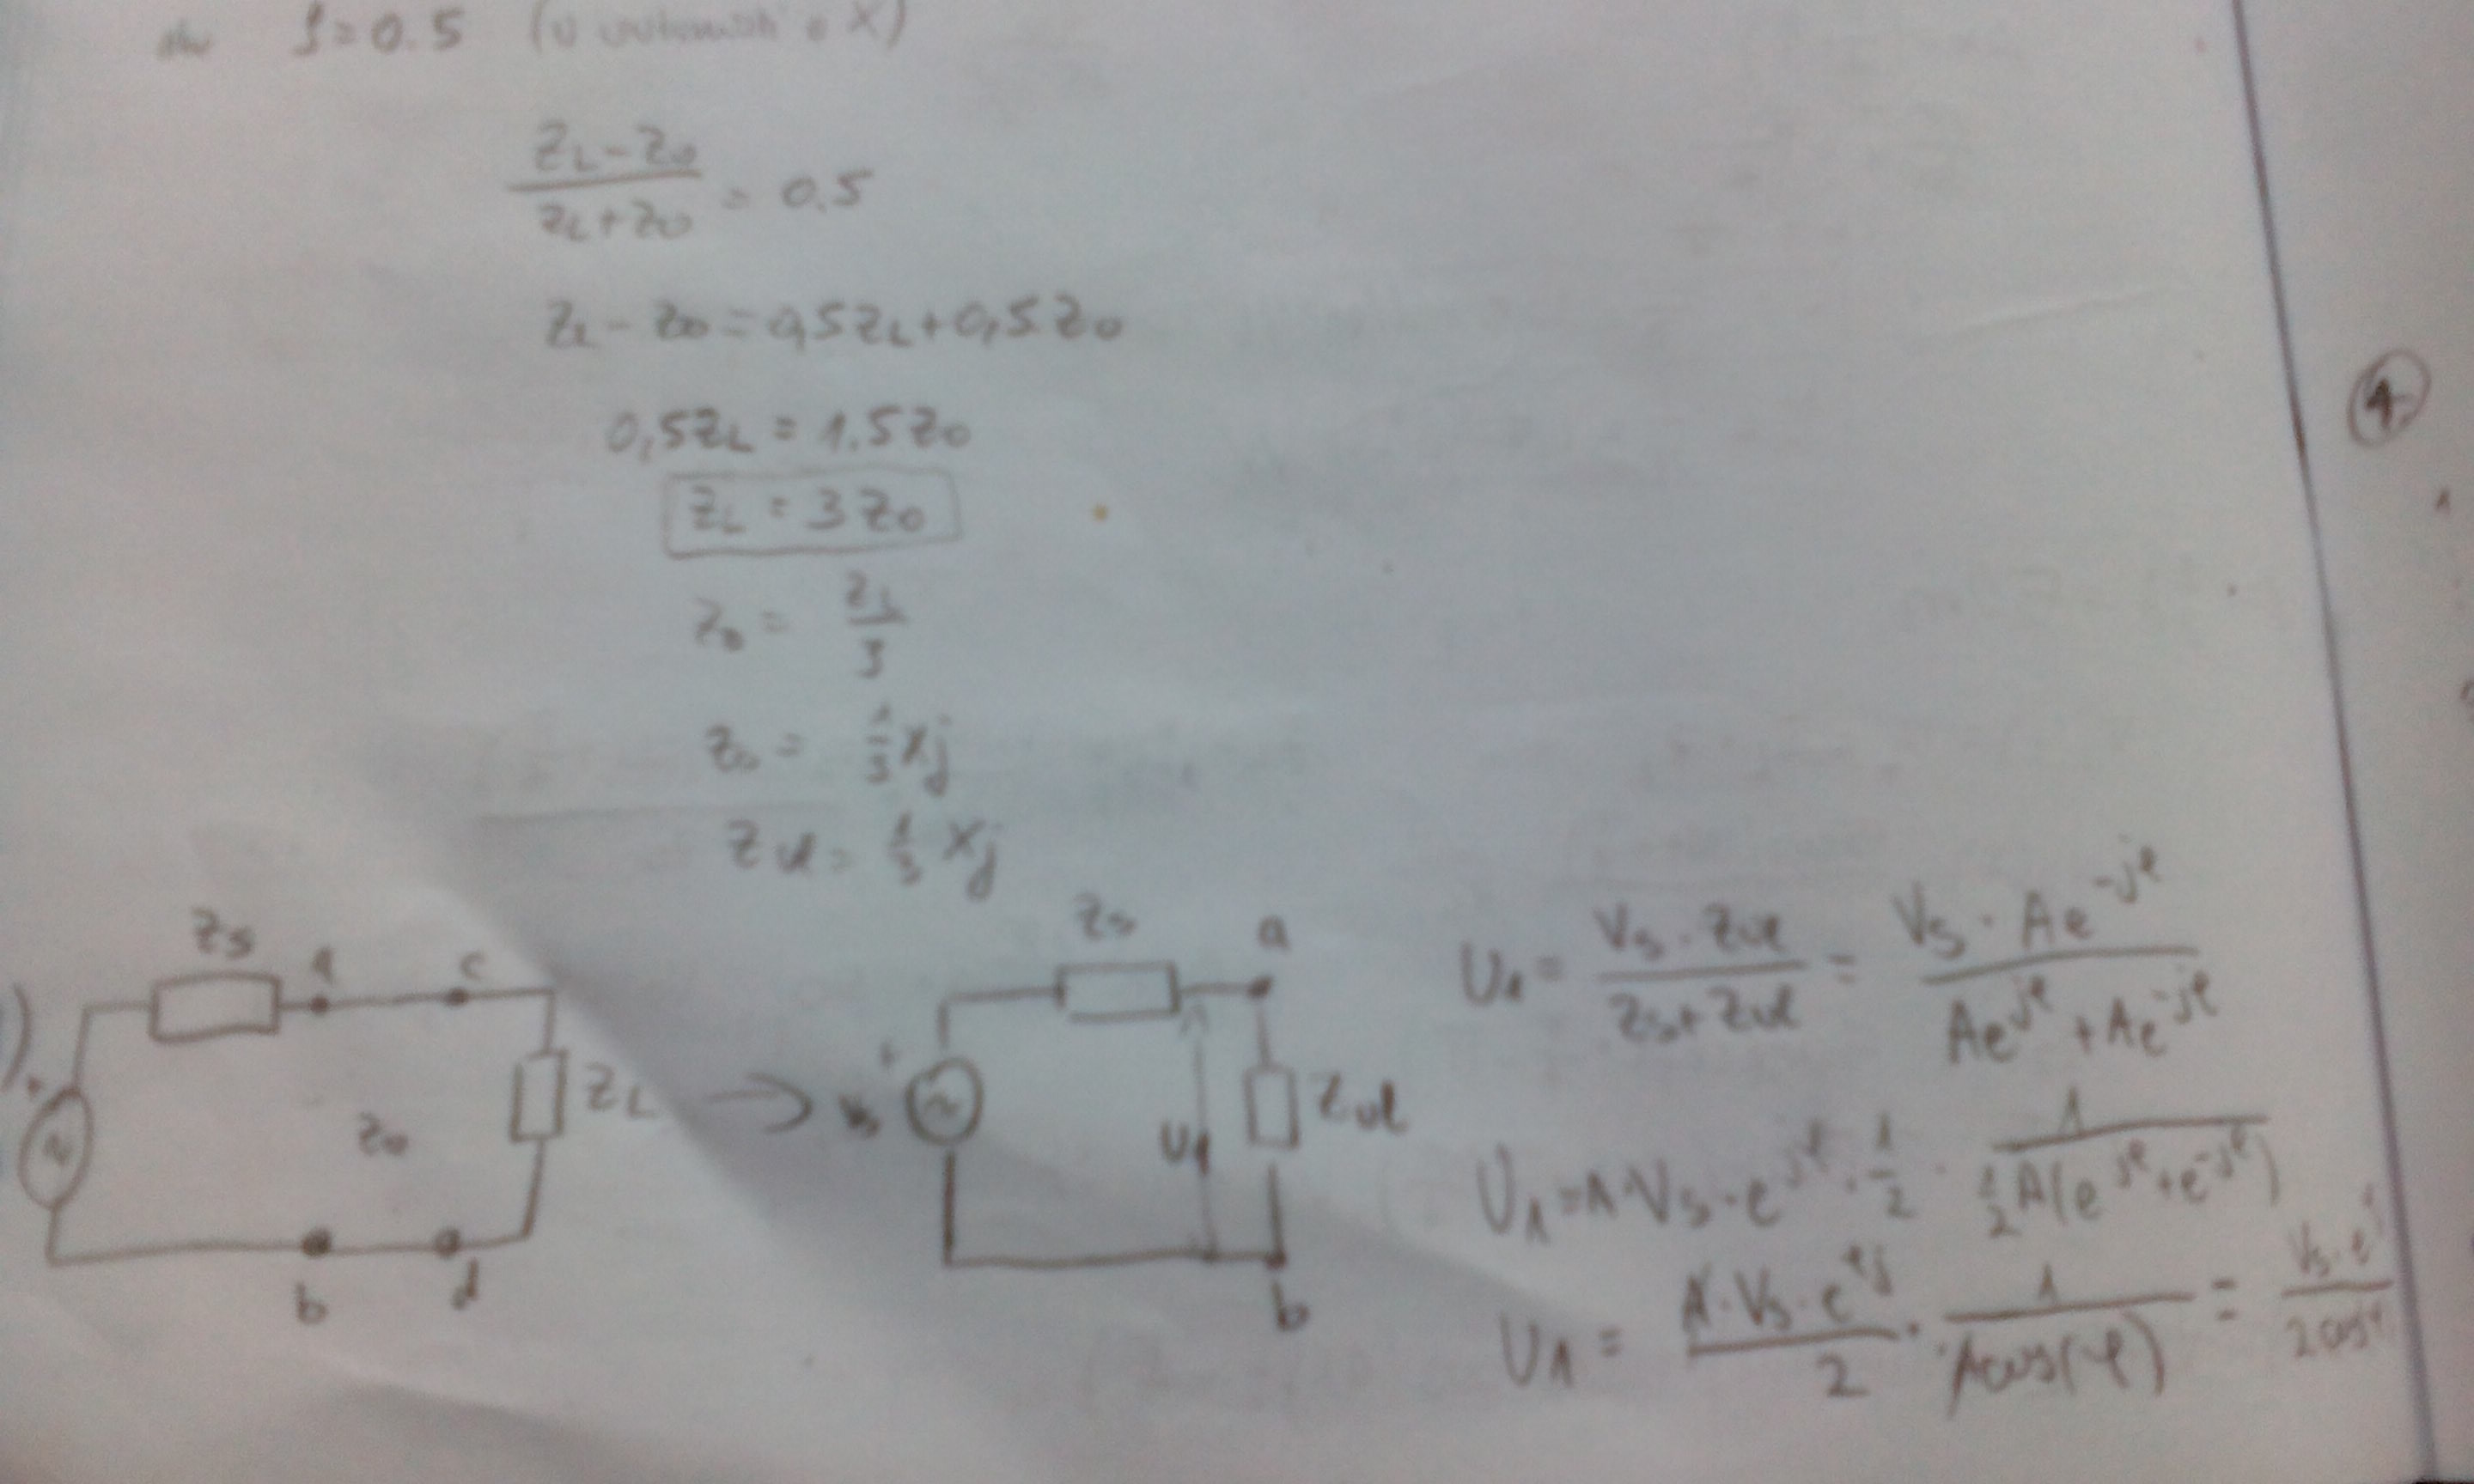 ρ=0.5 (u ovisnosti o X)
(ZL-Z0)/(ZL+Z0) = 0.5
ZL - Z0 = 0,5ZL + 0,5Z0
0,5ZL = 1.5Z0
ZL = 3Z0
Z0 = ZL/3
Z0 = 1/3 Xj
Zul = 1/3 Xj
Zs a c
ZL
Z0
b d
→
Zs a
+
Vs U1 Zul
b
U1 = (Vs · Zul)/(Zs+Zul) = (Vs · Ae^-jφ)/(Ae^jφ + Ae^-jφ)
U1 = A·Vs·e^-jφ · 1/2 · 1/(1/2 A(e^jφ + e^-jφ))
U1 = (A·Vs·e^-φj)/2 · 1/(A cos(φ)) =
4.